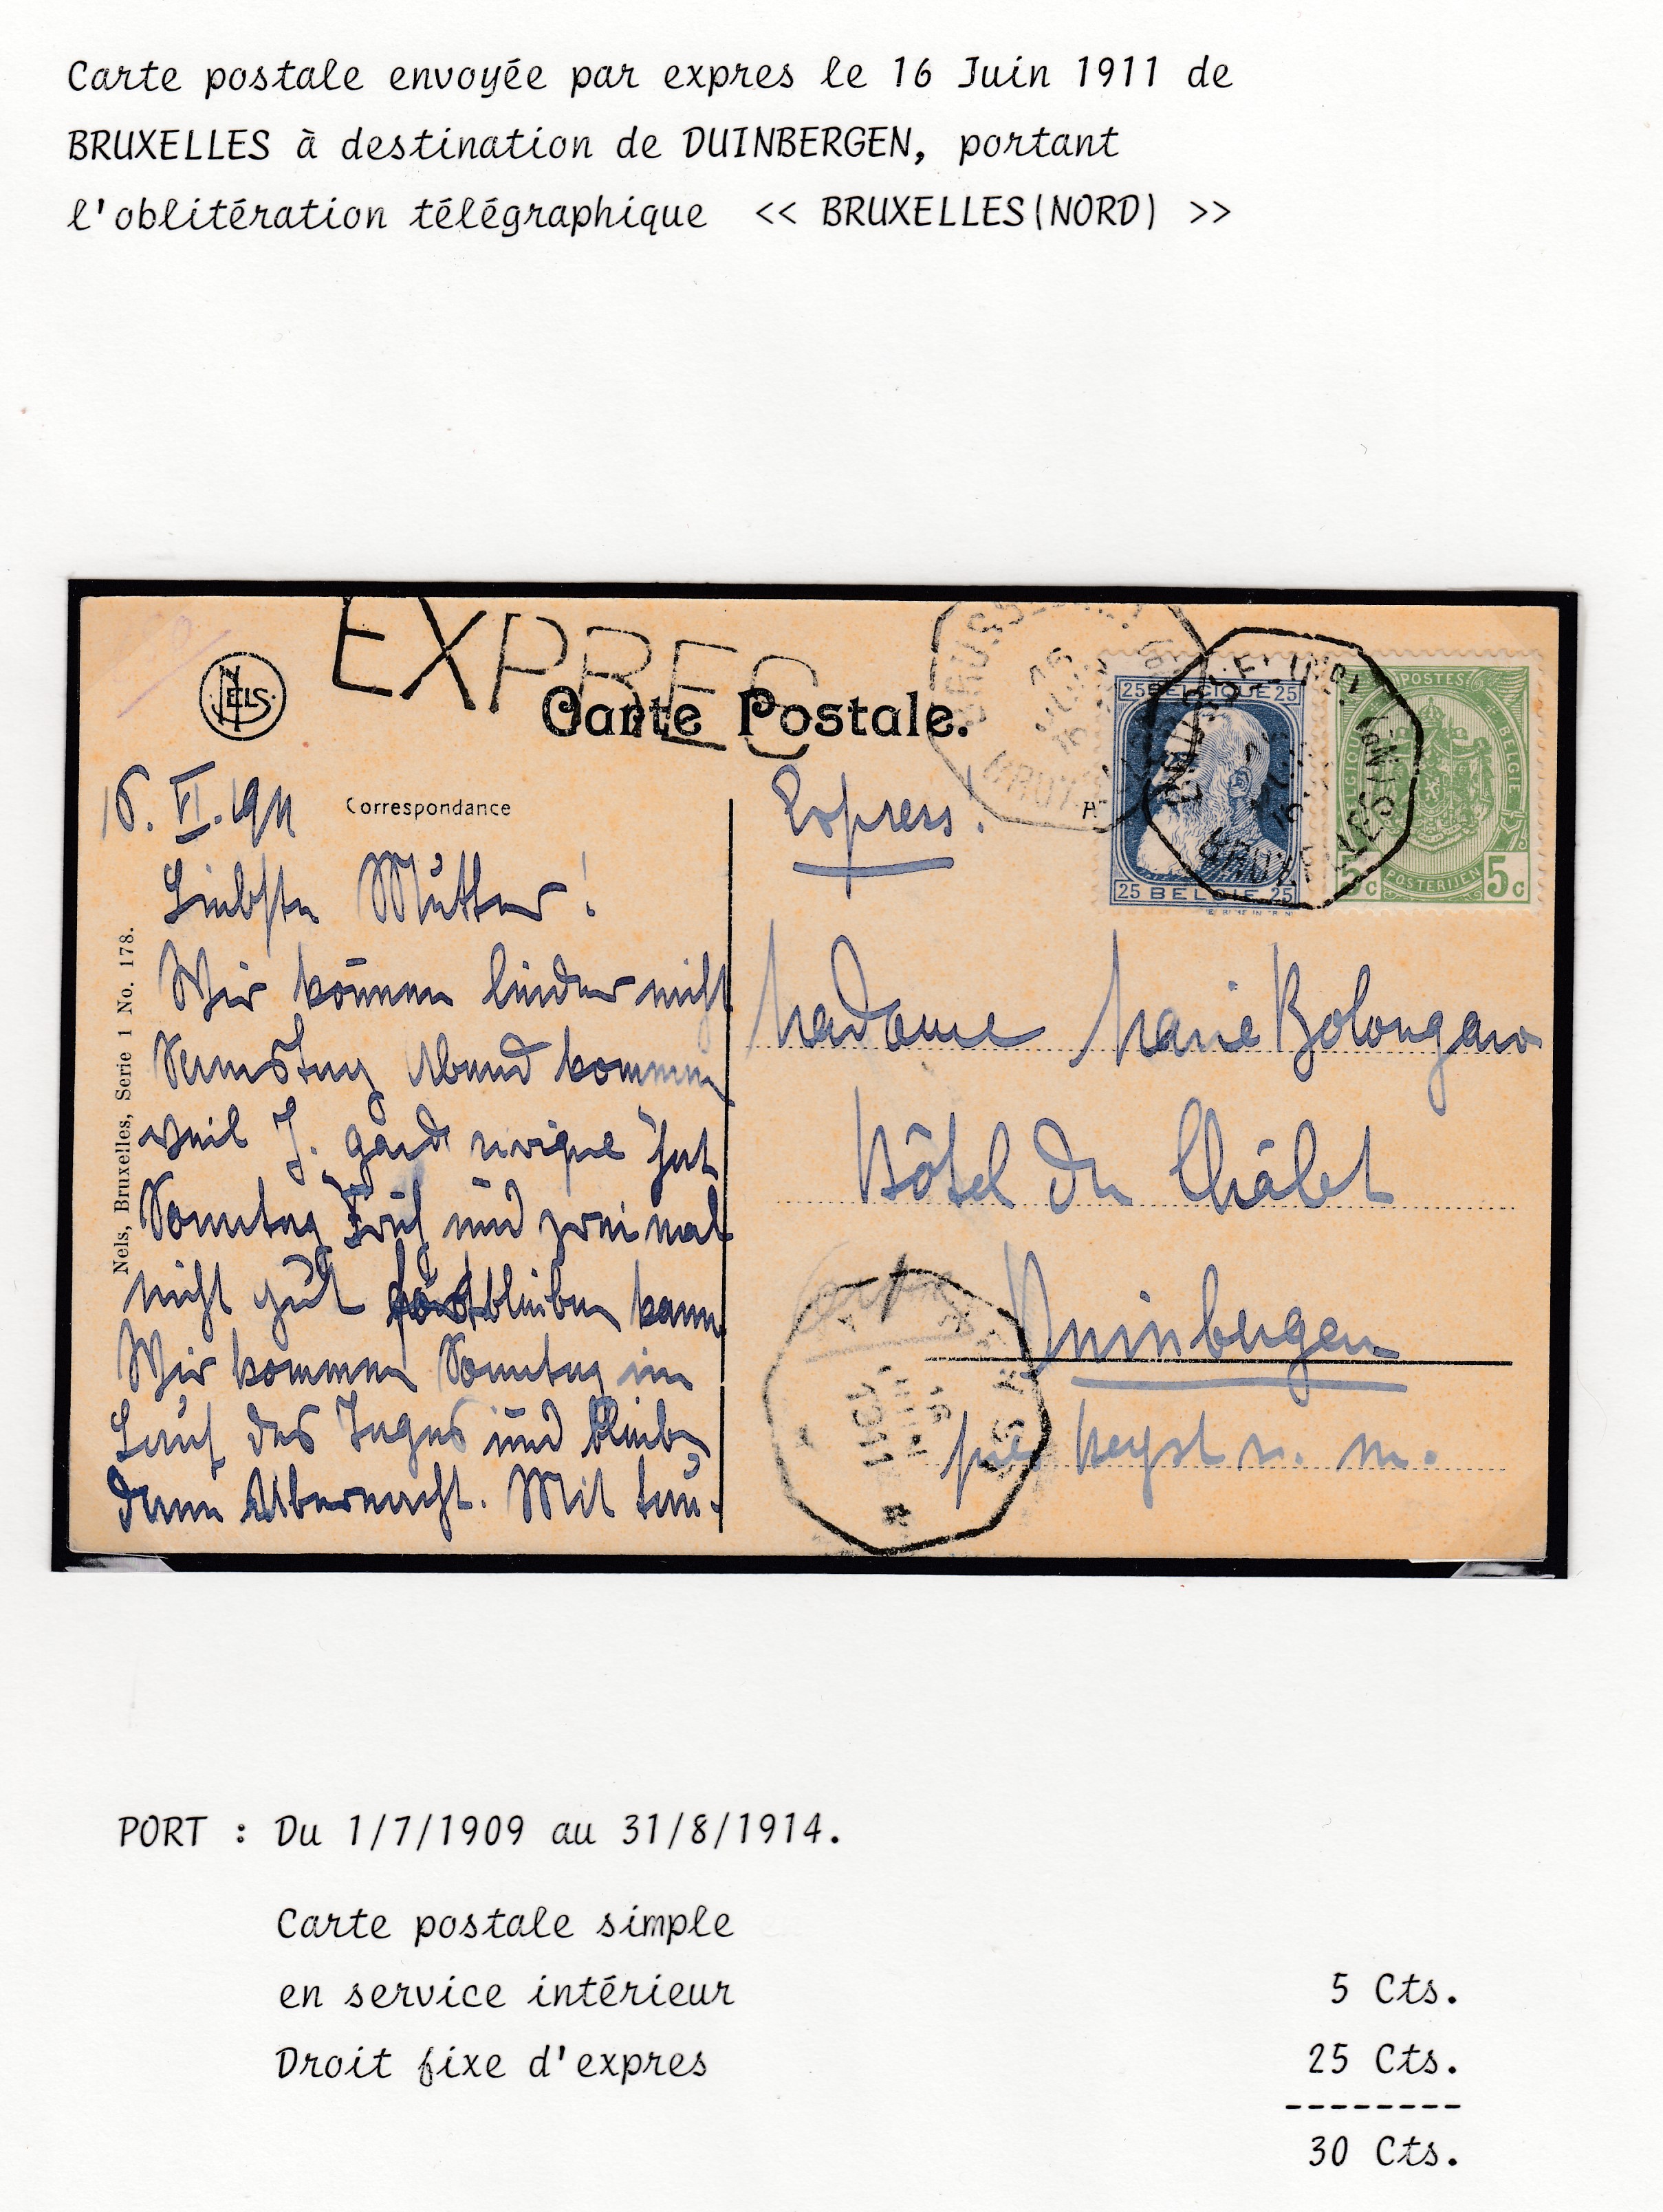 Carte postale envoyée par expres le 16 Juin 1911 de
BRUXELLES à destination de DUINBERGEN, portant
l'oblitération télégraphique << BRUXELLES(NORD) >>
EXPRES
NELS
Carte Postale.
25 BELGIQUE 25
25 BELGIE 25
POSTES
BELGIQUE
BELGIE
5c POSTERIJEN 5c
16. VI. 1911
Correspondance
Liebste Mutter!
Wir können leider nicht
Samstag Abend kommen
weil J. gard civique hat
Sonntag Früh und zweimal
nicht gut fortbleiben kann
Wir kommen Sonntag im
Lauf des Tages und bleiben
dann Übernacht. Mit tau-
Nels, Bruxelles, Serie 1 No. 178.
Express.
Madame Marie Bolongaro
Hôtel du Châlet
Duinbergen
près Heyst s. m.
PORT : Du 1/7/1909 au 31/8/1914.
Carte postale simple
en service intérieur 5 Cts.
Droit fixe d'expres 25 Cts.
--------
30 Cts.